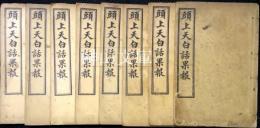 頭上天白話果報
頭上天白話果報
頭上天白話果報
頭上天白話果報
頭上天白話果報
頭上天白話果報
頭上天白話果報
頭上天白話果報